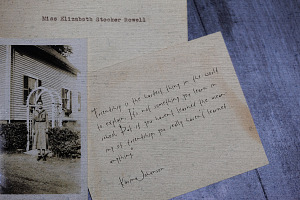 Miss Elizabeth Stocker Rowell
Friendship is the hardest thing in the world
to explain. It's not something you learn in
school. But if you haven't learned the mean
ing of friendship, you really haven't learned
anything."